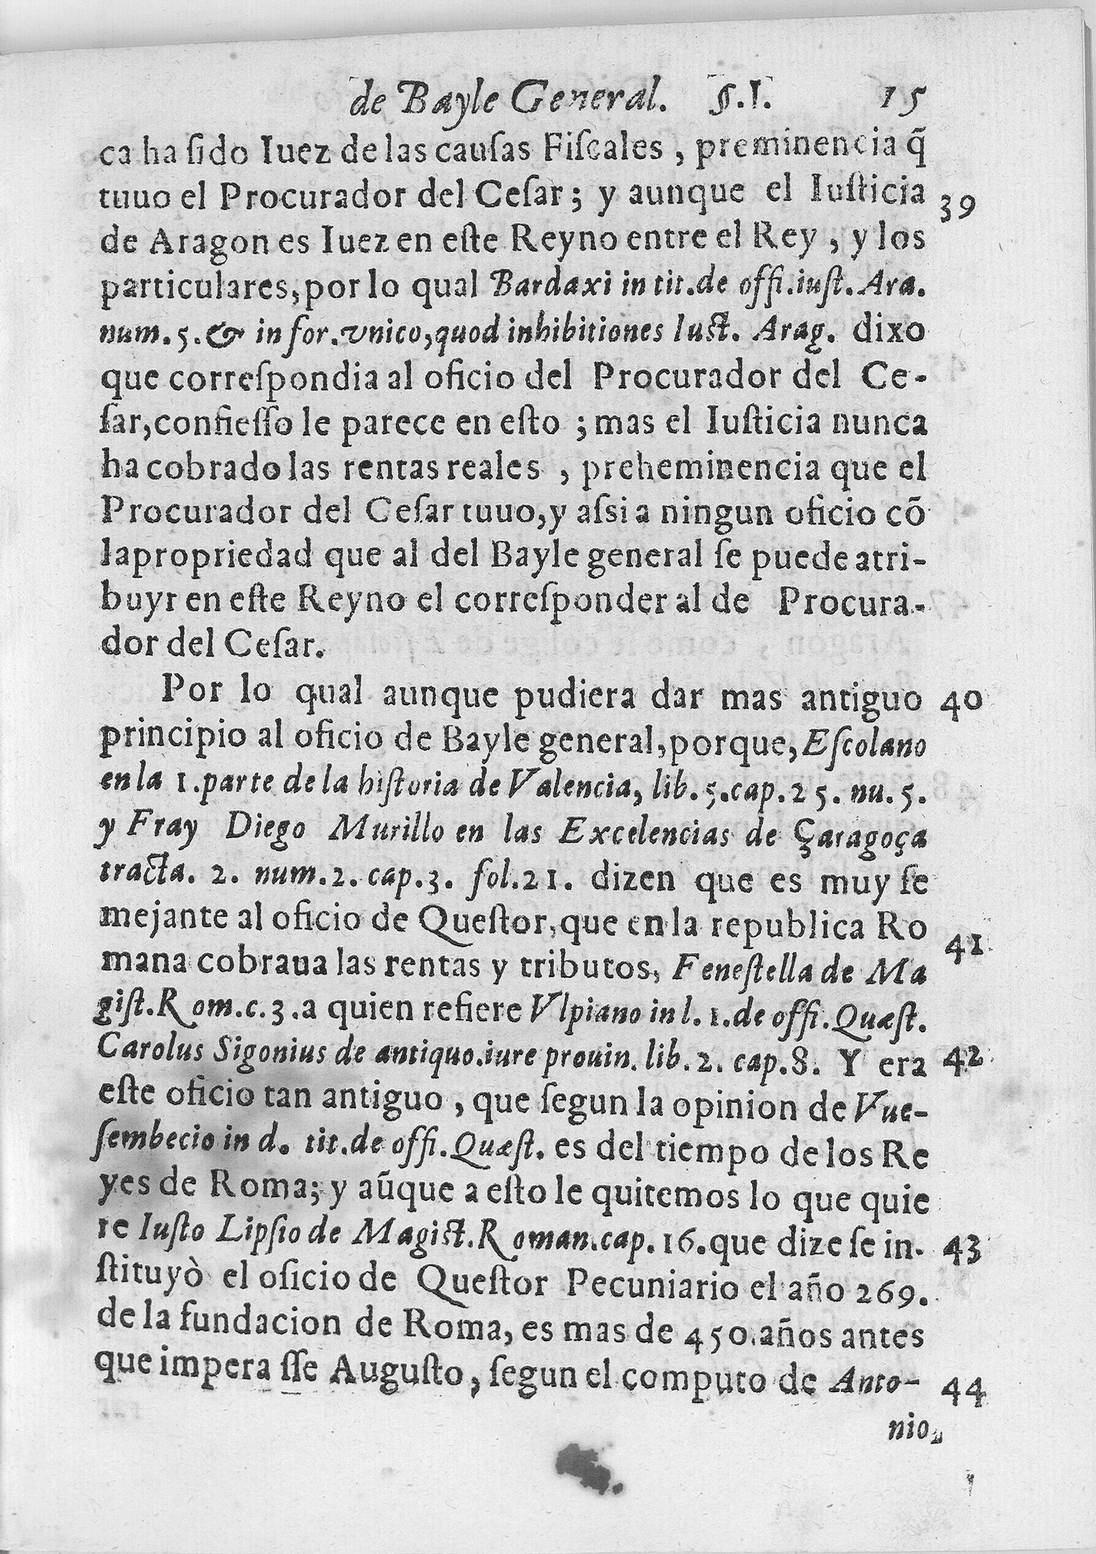 de Bayle General. §.I. 15
ca ha ſido Iuez de las cauſas Fiſcales, preminencia q̃
tuuo el Procurador del Ceſar; y aunque el Iuſticia 39
de Aragon es Iuez en eſte Reyno entre el Rey, y los
particulares, por lo qual Bardaxi in tit. de offi. iuſt. Ara.
num. 5. & in for. vnico, quod inhibitiones Iuſt. Arag. dixo
que correſpondia al oficio del Procurador del Ce-
ſar, confieſſo le parece en eſto; mas el Iuſticia nunca
ha cobrado las rentas reales, preheminencia que el
Procurador del Ceſar tuuo, y aſsi a ningun oficio cõ
la propriedad que al del Bayle general ſe puede atri-
buyr en eſte Reyno el correſponder al de Procura-
dor del Ceſar.
Por lo qual aunque pudiera dar mas antiguo 40
principio al oficio de Bayle general, porque, Eſcolano
en la 1. parte de la hiſtoria de Valencia, lib. 5. cap. 25. nu. 5.
y Fray Diego Murillo en las Excelencias de Çaragoça
tracta. 2. num. 2. cap. 3. fol. 21. dizen que es muy ſe
mejante al oficio de Queſtor, que en la republica Ro
mana cobraua las rentas y tributos, Feneſtella de Ma 41
giſt. Rom. c. 3. a quien refiere Vlpiano in l. 1. de offi. Quæſt.
Carolus Sigonius de antiquo. iure prouin. lib. 2. cap. 8. Y era 42
eſte oficio tan antiguo, que ſegun la opinion de Vue-
ſembecio in d. tit. de offi. Quæſt. es del tiempo de los Re
yes de Roma; y aũque a eſto le quitemos lo que quie
re Iuſto Lipſio de Magiſt. Roman. cap. 16. que dize ſe in- 43
ſtituyò el oficio de Queſtor Pecuniario el año 269.
de la fundacion de Roma, es mas de 450. años antes
que impera ſſe Auguſto, ſegun el computo de Anto- 44
nio